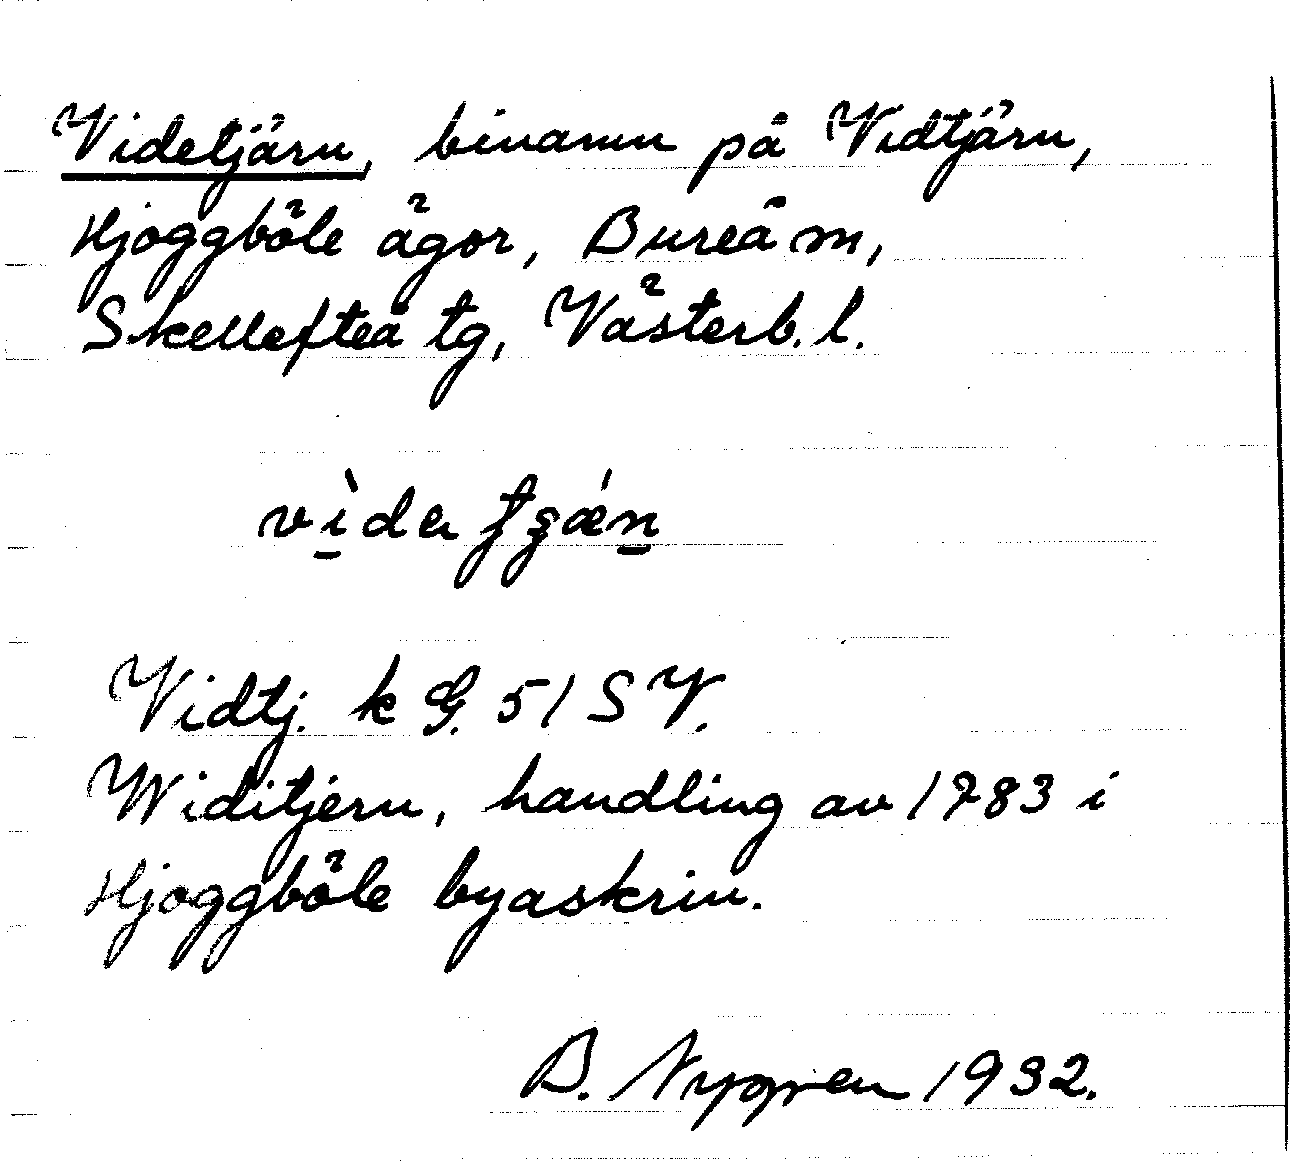 Videtjärn, binamn på Vidtjärn,
Hjoggböle ägor, Bureå sn,
Skellefteå tg, Västerb. l.
Vidtj. k G. 51 S V.
Widitjern, handling av 1783 i
Hjoggböle byaskrin.
B. Nygren 1932.